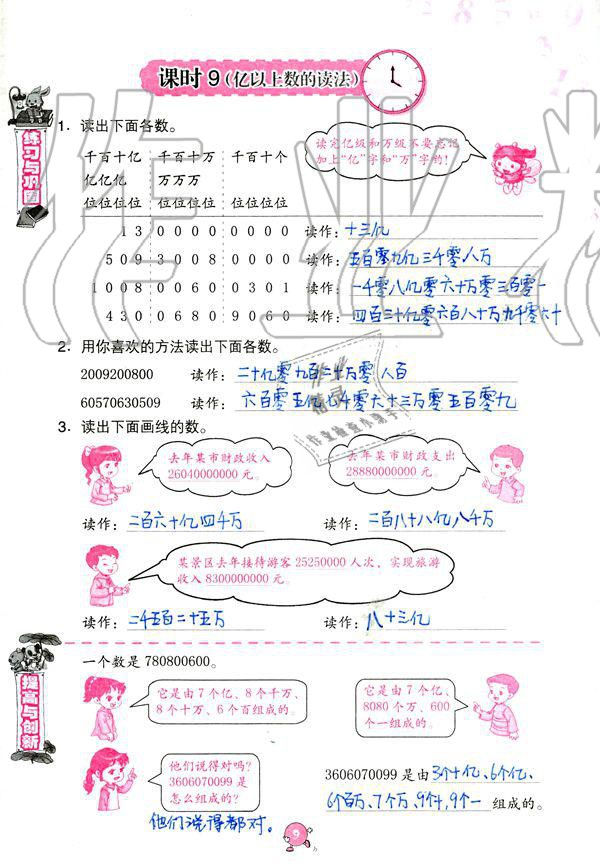 课时 9(亿以上数的读法)
练习与巩固
1. 读出下面各数。
读完亿级和万级不要忘记
加上“亿”字和“万”字哟!
千百十亿 千百十万 千百十个
亿亿亿 万万万
位位位位 位位位位 位位位位
1 3 0 0 0 0 0 0 0 0 读作: 十三亿
5 0 9 3 0 0 8 0 0 0 0 读作: 五百零九亿三千零八万
1 0 0 8 0 0 6 0 0 3 0 1 读作: 一千零八亿零六十万零三百零一
4 3 0 0 6 8 0 9 0 6 0 读作: 四百三十亿零六百八十万九千零六十
2. 用你喜欢的方法读出下面各数。
2009200800 读作: 二十亿零九百二十万零八百
60570630509 读作: 六百零五亿七千零六十三万零五百零九
3. 读出下面画线的数。
去年某市财政收入
26040000000 元。
去年某市财政支出
28880000000 元。
读作: 二百六十亿四千万
读作: 二百八十八亿八千万
某景区去年接待游客 25250000 人次，实现旅游
收入 8300000000 元。
读作: 二千五百二十五万
读作: 八十三亿
提高与创新
一个数是 780800600。
它是由 7 个亿、8 个千万、
8 个十万、6 个百组成的。
它是由 7 个亿、
8080 个万、600
个一组成的。
他们说得对吗?
3606070099 是
怎么组成的?
3606070099 是由3个十亿、6个亿、
6个百万、7个万、9个十、9个一 组成的。
他们说得都对。
9